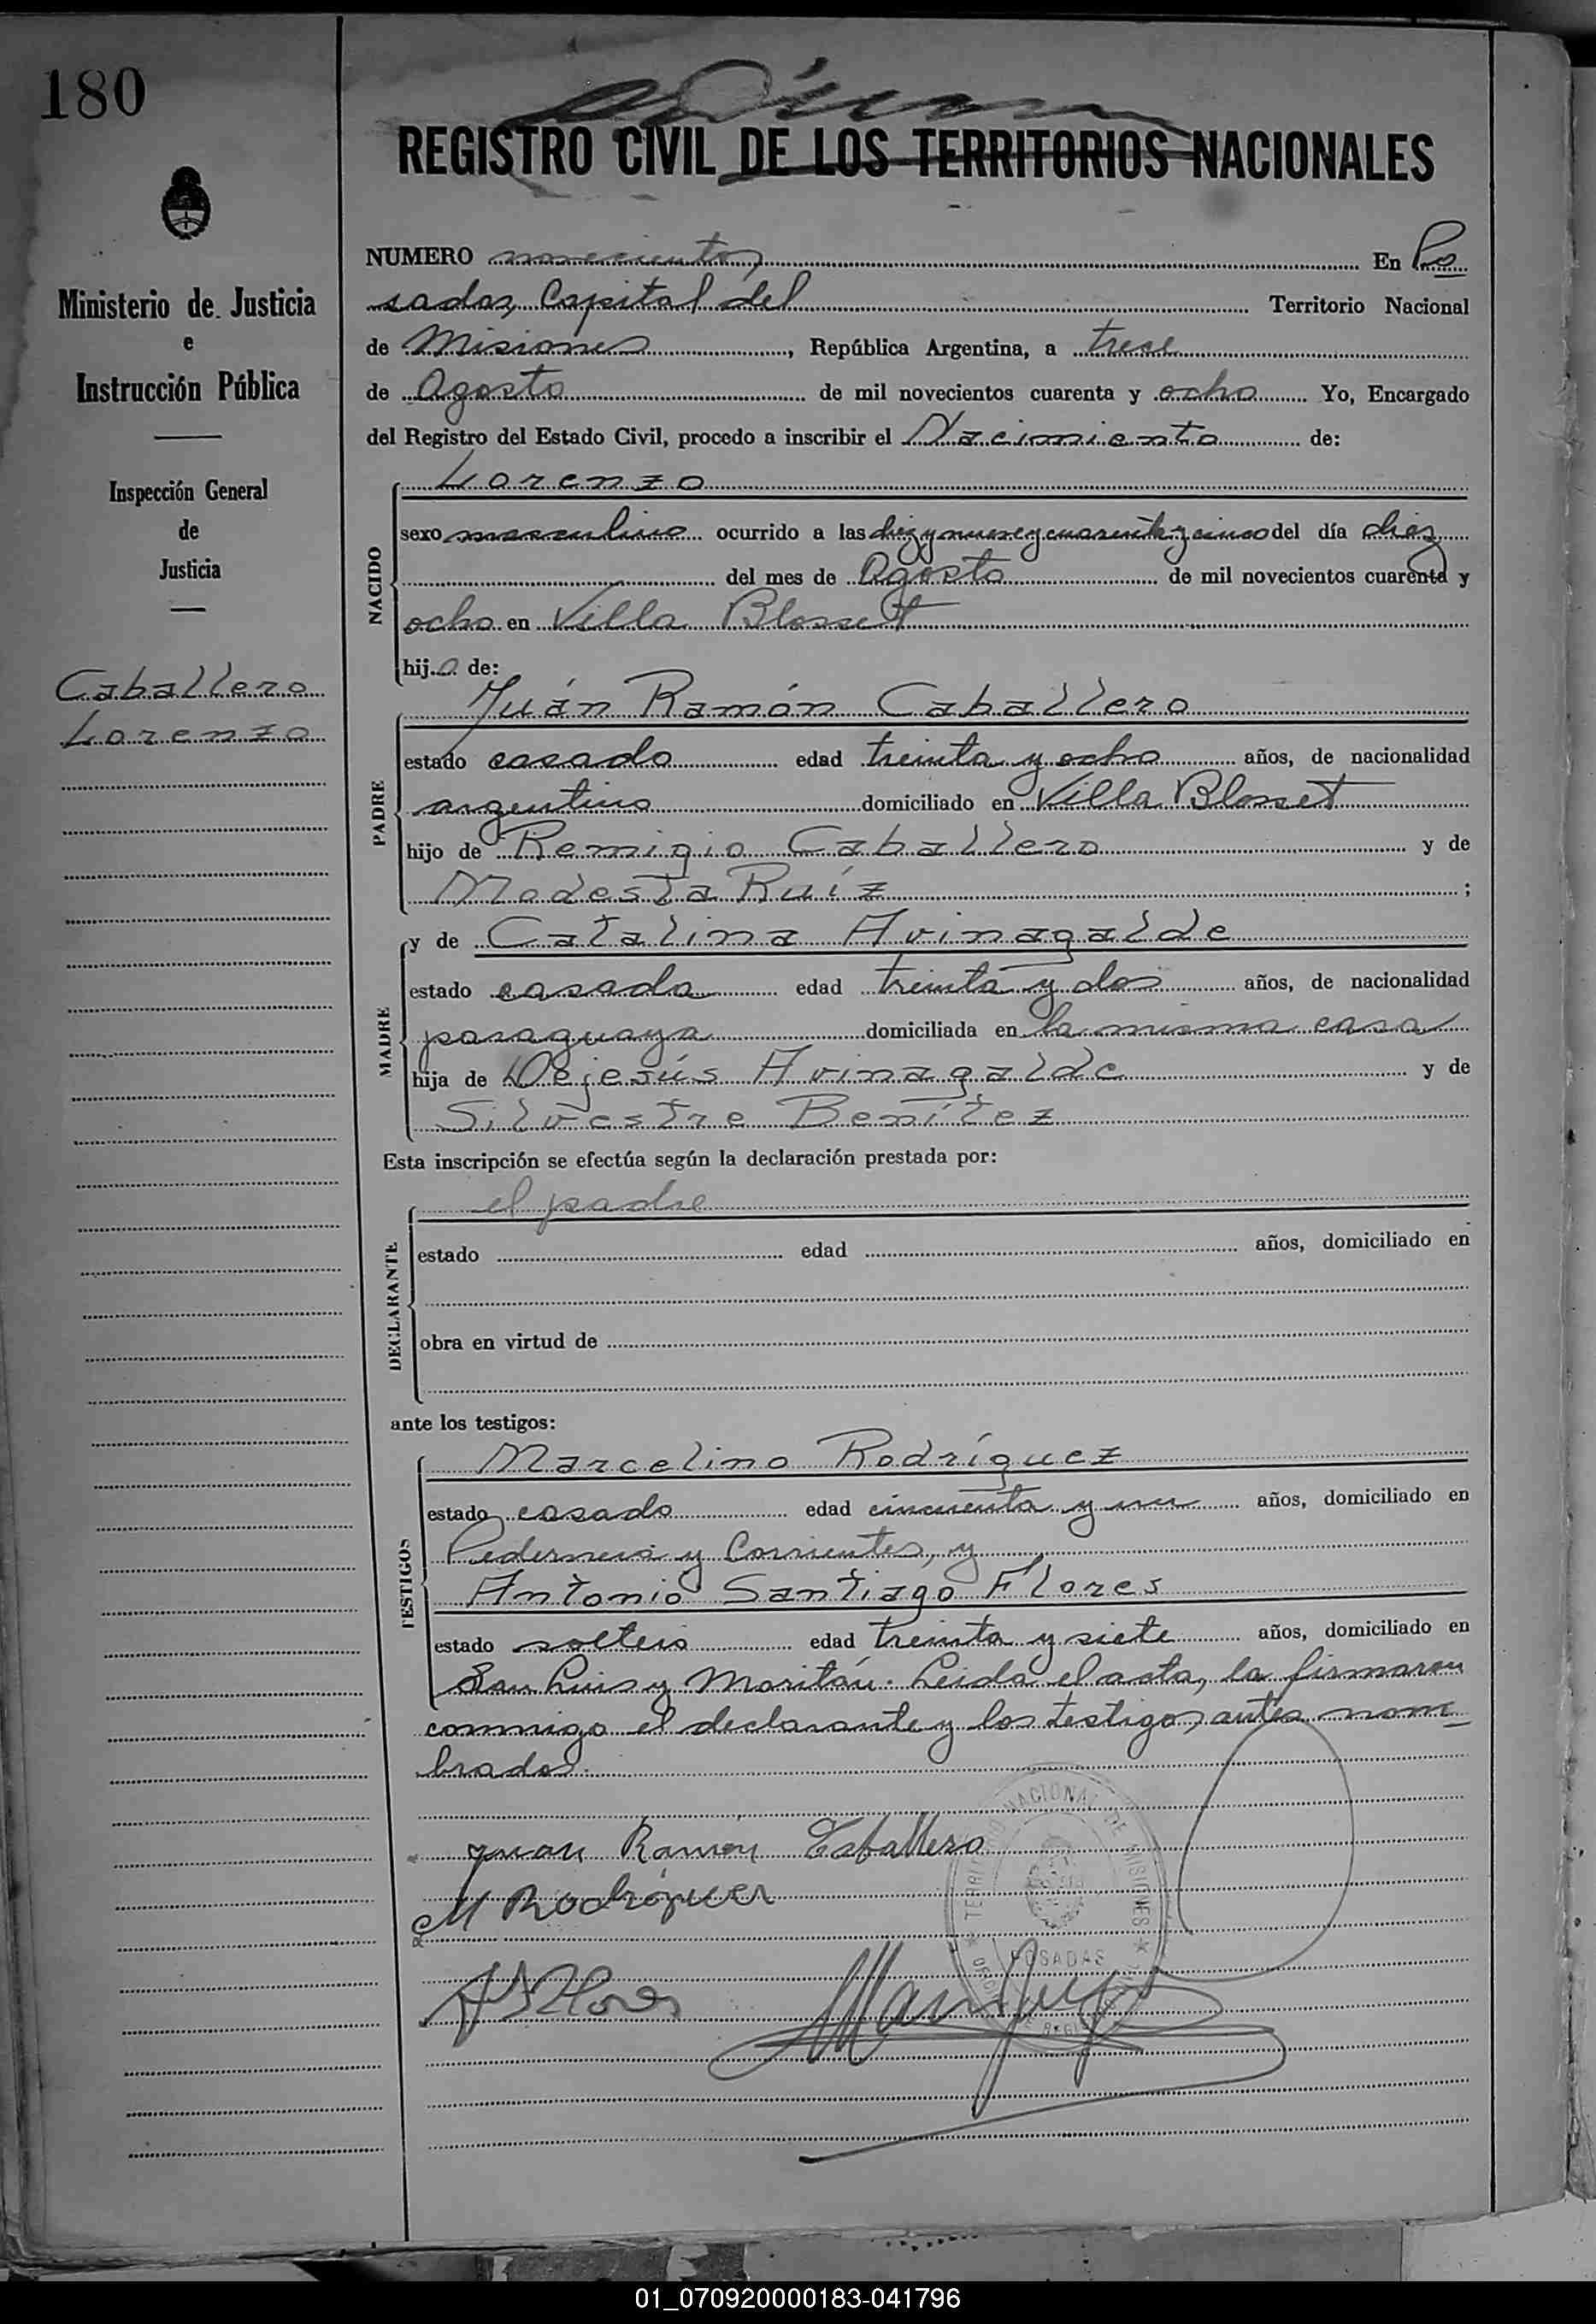 180
REGISTRO CIVIL DE LOS TERRITORIOS NACIONALES
Ministerio de Justicia
e
Instrucción Pública
Inspección General
de
Justicia
Caballero
Lorenzo
NUMERO novecientos En Po
sadas, Capital del Territorio Nacional
de Misiones, República Argentina, a trece
de Agosto de mil novecientos cuarenta y ocho Yo, Encargado
del Registro del Estado Civil, procedo a inscribir el Nacimiento de:
NACIDO
Lorenzo
sexo masculino ocurrido a las diez y nueve y cuarenta y cinco del día diez
del mes de Agosto de mil novecientos cuarenta y
ocho en Villa Blosset
hijo de:
PADRE
Juán Ramón Caballero
estado casado edad treinta y ocho años, de nacionalidad
argentino domiciliado en Villa Blosset
hijo de Remigio Caballero y de
Modesta Ruíz ;
MADRE
y de Catalina Avinagalde
estado casada edad treinta y dos años, de nacionalidad
paraguaya domiciliada en la misma casa
hija de Dejesús Avinagalde y de
Silvestre Benítez
Esta inscripción se efectúa según la declaración prestada por:
DECLARANTE
el padre
estado edad años, domiciliado en
obra en virtud de
ante los testigos:
TESTIGOS
Marcelino Rodríguez
estado casado edad cincuenta y un años, domiciliado en
Pedernera y Corrientes, y
Antonio Santiago Flores
estado soltero edad treinta y siete años, domiciliado en
San Luis y Moritán. Leida el acta, la firmaron
conmigo el declarante y los testigos antes nom
brados.
Juan Ramón Caballero
M Rodríguez
A S Flores
TERRITORIO NACIONAL DE MISIONES
POSADAS
01_070920000183-041796